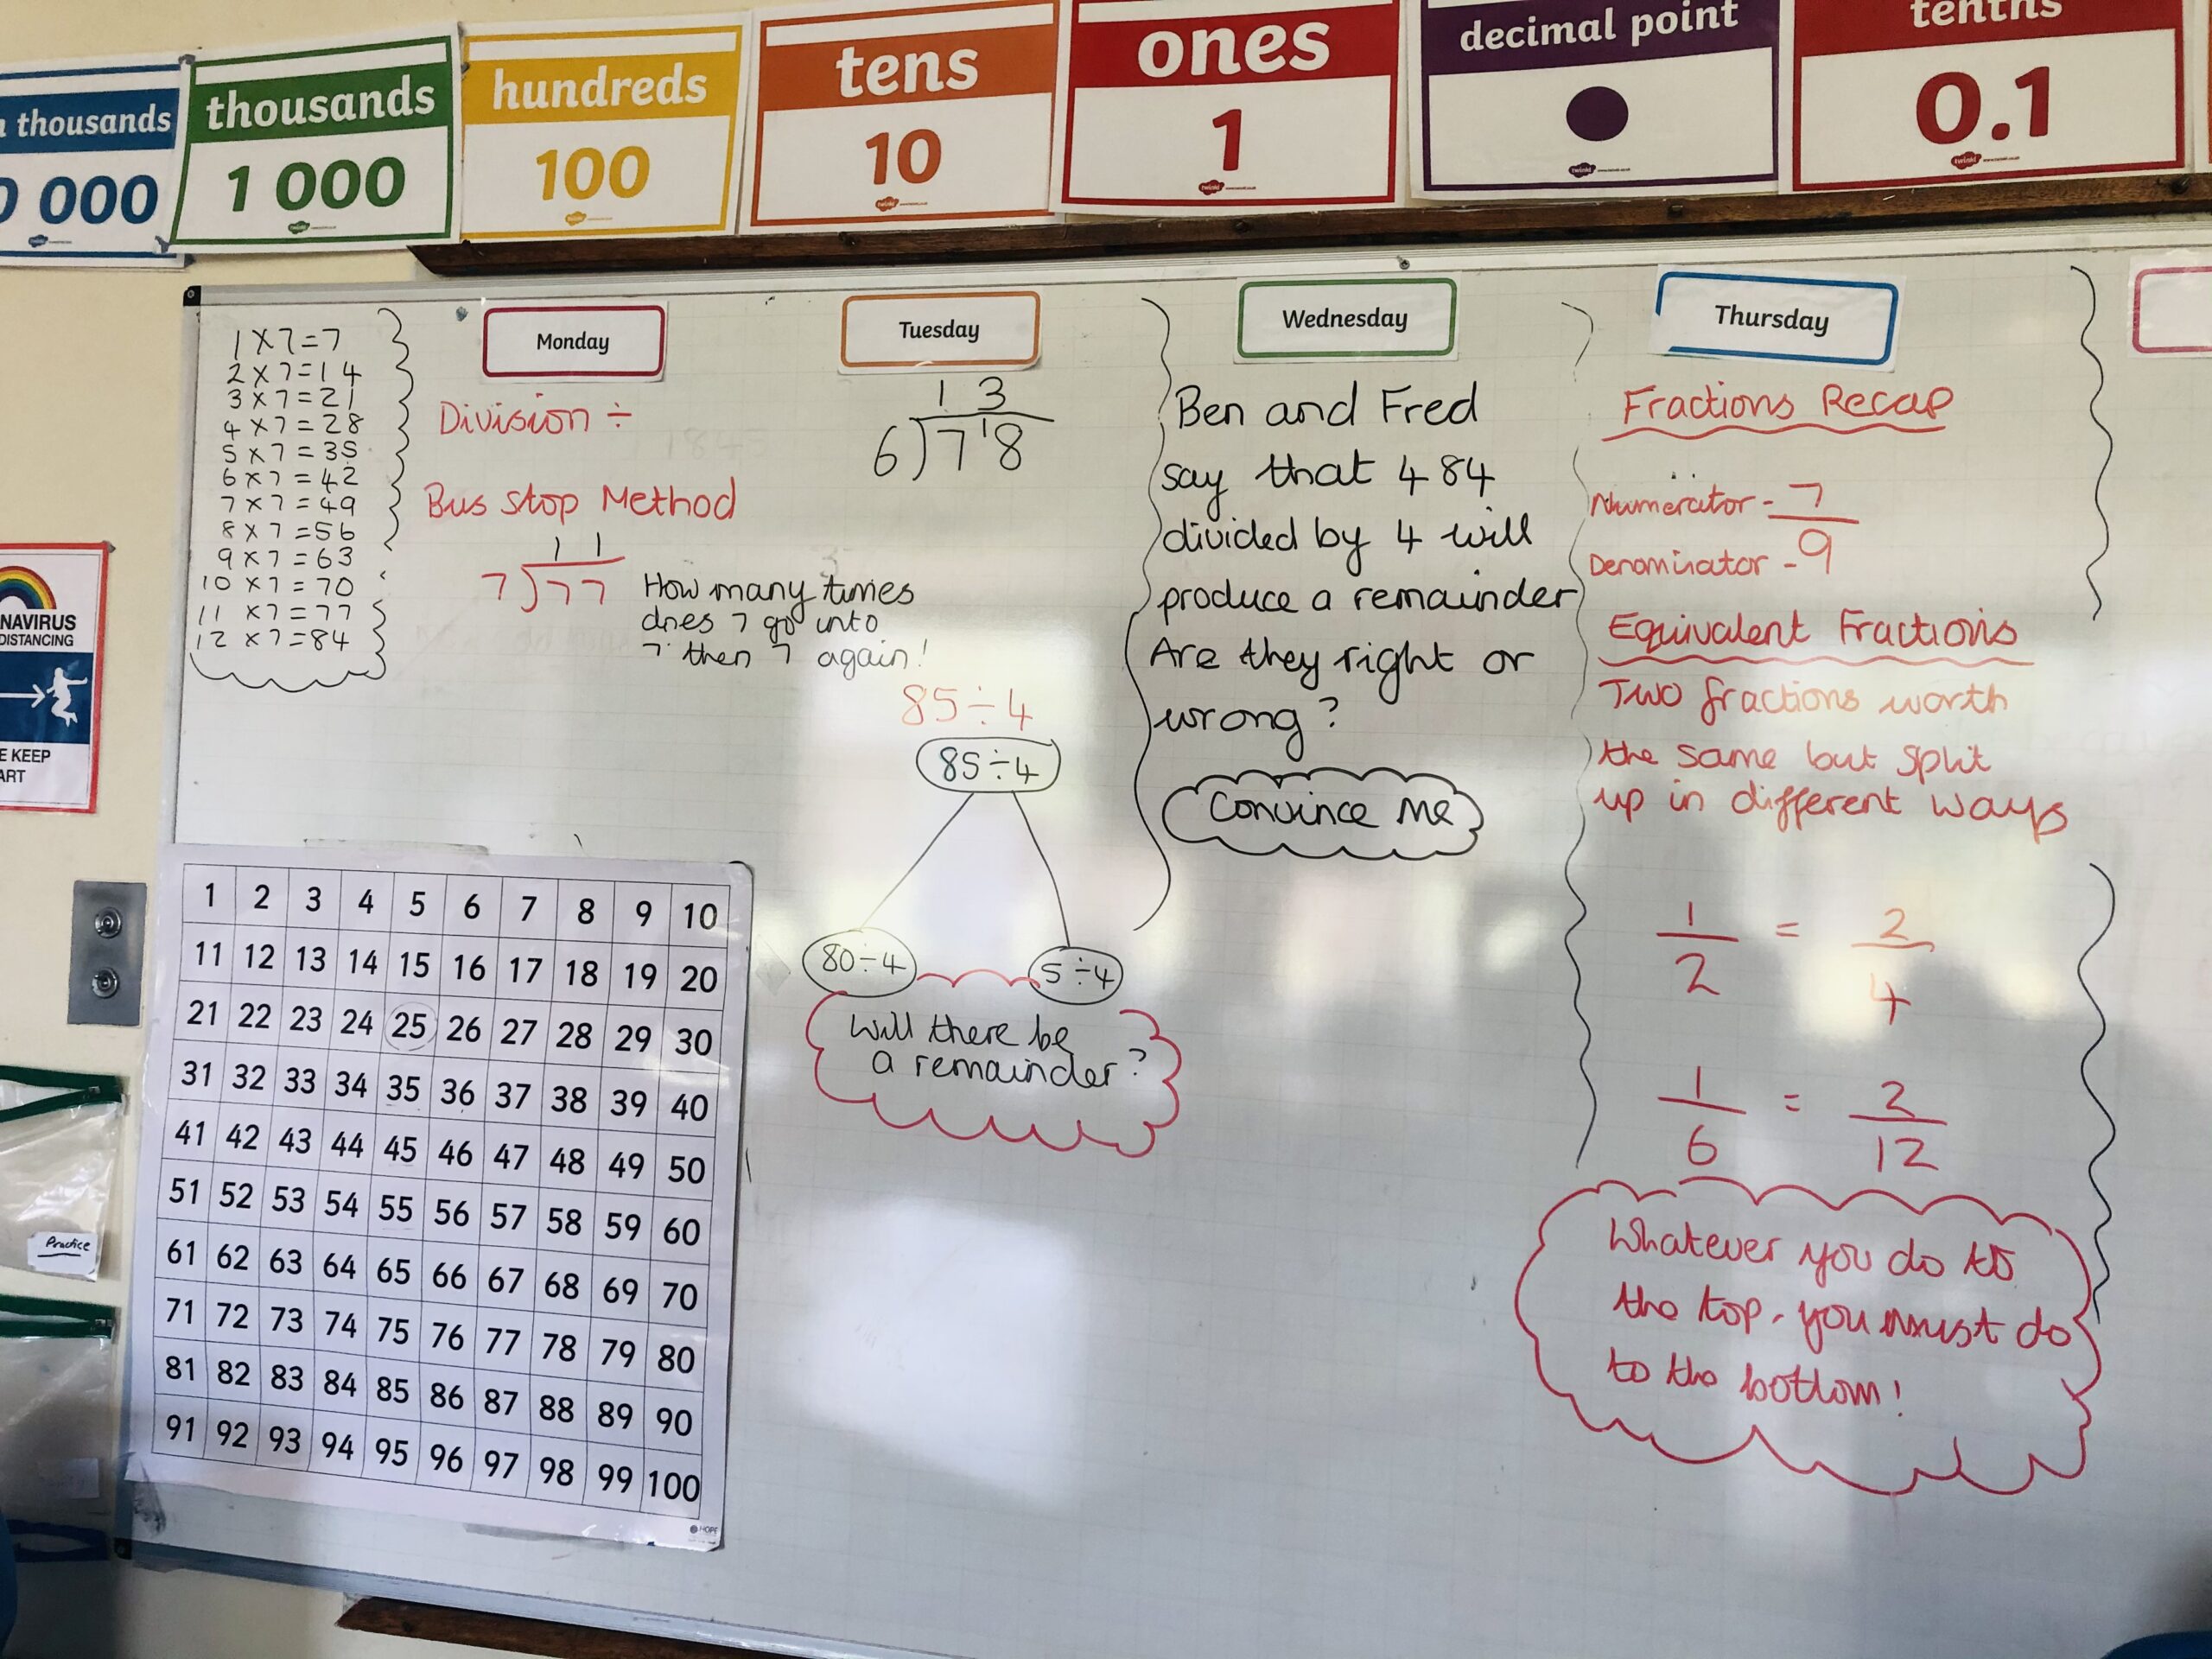 thousands
0 000
thousands
1 000
hundreds
100
tens
10
ones
1
decimal point
tenths
0.1
1 x 7 = 7
2 x 7 = 14
3 x 7 = 21
4 x 7 = 28
5 x 7 = 35
6 x 7 = 42
7 x 7 = 49
8 x 7 = 56
9 x 7 = 63
10 x 7 = 70
11 x 7 = 77
12 x 7 = 84
Monday
Division ÷
Bus Stop Method
11
7)77
How many times
does 7 go into
7 then 7 again!
Tuesday
13
6)7¹8
85÷4
85÷4
80÷4
5÷4
Will there be
a remainder?
Wednesday
Ben and Fred
say that 484
divided by 4 will
produce a remainder
Are they right or
wrong?
Convince Me
Thursday
Fractions Recap
Numerator - 7
Denominator - 9
Equivalent Fractions
Two fractions worth
the same but split
up in different ways
1/2 = 2/4
1/6 = 2/12
Whatever you do to
the top, you must do
to the bottom!
NAVIRUS
DISTANCING
E KEEP
ART
Practice
1 2 3 4 5 6 7 8 9 10
11 12 13 14 15 16 17 18 19 20
21 22 23 24 25 26 27 28 29 30
31 32 33 34 35 36 37 38 39 40
41 42 43 44 45 46 47 48 49 50
51 52 53 54 55 56 57 58 59 60
61 62 63 64 65 66 67 68 69 70
71 72 73 74 75 76 77 78 79 80
81 82 83 84 85 86 87 88 89 90
91 92 93 94 95 96 97 98 99 100
HOPE